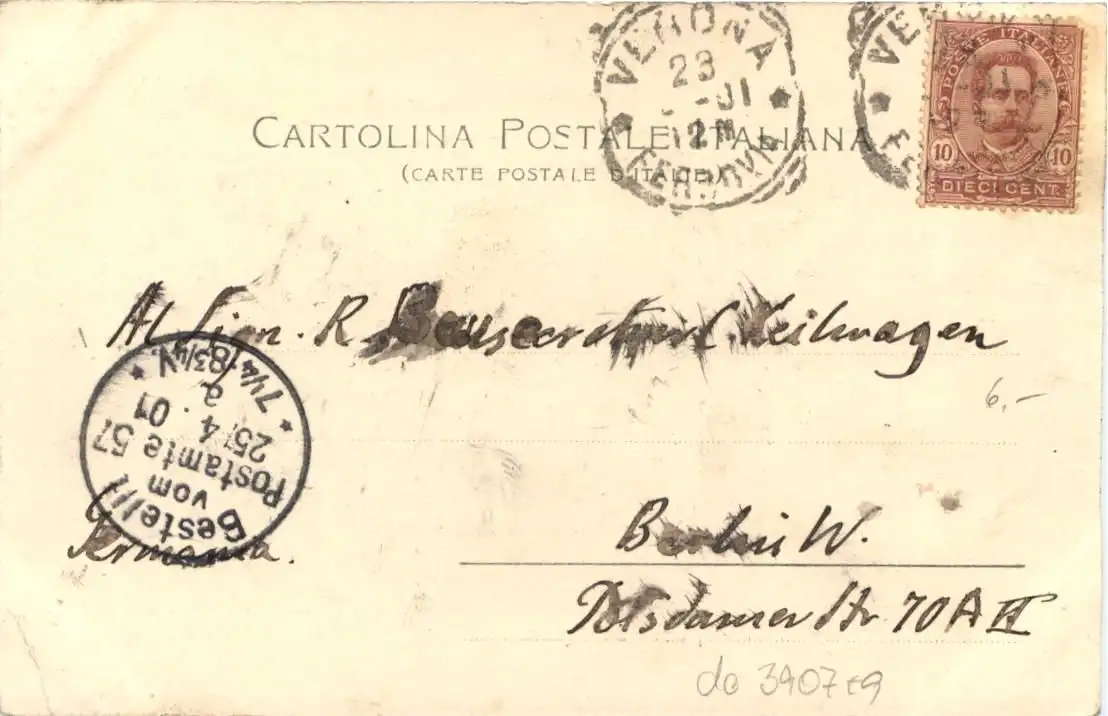 CARTOLINA POSTALE ITALIANA
(CARTE POSTALE D'ITALIE)
VERONA
23
12M
FERROVIA
POSTE ITALIANE
10 10
DIECI CENT.
Al Sign. R. Keilwagen
6.-
Bestellt
vom
Postamte 57
25. 4. 01
a
7¼-8¾N.
Germania.
Berlin W.
Potsdamer Str. 70A II
do 3907 t9